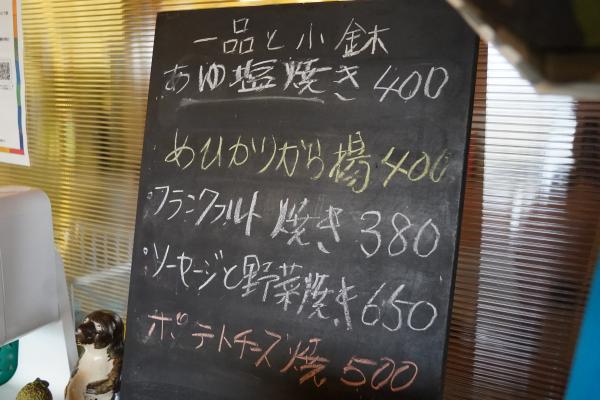 一品と小鉢
あゆ塩焼き 400
めひかりから揚 400
・フランクフルト 焼き 380
・ソーセージと野菜焼き 650
ポテトチーズ焼 500